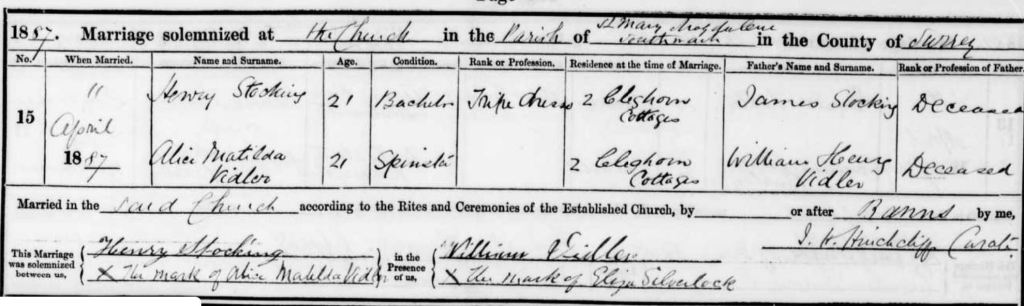 1887. Marriage solemnized at the Church in the Parish of St Mary Magdalene Southwark in the County of Surrey
No. When Married. Name and Surname. Age. Condition. Rank or Profession. Residence at the time of Marriage. Father's Name and Surname. Rank or Profession of Father.
15 " April 1887
Henry Stocking 21 Bachelor Tripe Dresser 2 Cleghorn Cottages James Stocking Deceased
Alice Matilda Vidler 21 Spinster 2 Cleghorn Cottages William Henry Vidler Deceased
Married in the said Church according to the Rites and Ceremonies of the Established Church, by or after Banns by me,
J. H. Hinchcliff Curate
This Marriage was solemnized between us, Henry Stocking
X the mark of Alice Matilda Vidler
in the Presence of us, William Vidler
X the mark of Eliza Silverlock